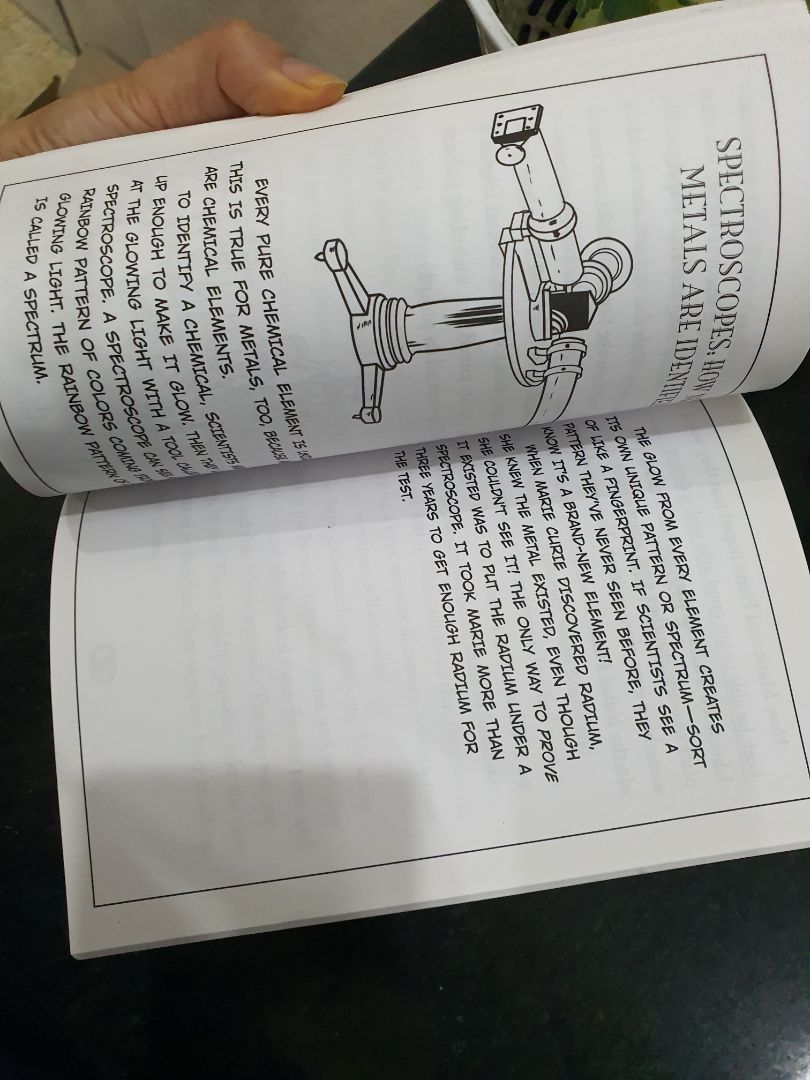 SPECTROSCOPES: HOW
METALS ARE
EVERY PURE CHEMICAL ELEMENT IS
THIS IS TRUE FOR METALS, TOO, BECAUSE
ARE CHEMICAL ELEMENTS.
TO IDENTIFY A CHEMICAL, SCIENTISTS
UP ENOUGH TO MAKE IT GLOW. THEN THEY
AT THE GLOWING LIGHT WITH A TOOL
SPECTROSCOPE. A SPECTROSCOPE CAN
RAINBOW PATTERN OF COLORS COMING
GLOWING LIGHT. THE RAINBOW PATTERN
IS CALLED A SPECTRUM.
THE GLOW FROM EVERY ELEMENT CREATES
ITS OWN UNIQUE PATTERN OR SPECTRUM—SORT
OF LIKE A FINGERPRINT. IF SCIENTISTS SEE A
PATTERN THEY'VE NEVER SEEN BEFORE, THEY
KNOW IT'S A BRAND-NEW ELEMENT!
WHEN MARIE CURIE DISCOVERED RADIUM,
SHE KNEW THE METAL EXISTED, EVEN THOUGH
SHE COULDN'T SEE IT! THE ONLY WAY TO PROVE
IT EXISTED WAS TO PUT THE RADIUM UNDER A
SPECTROSCOPE. IT TOOK MARIE MORE THAN
THREE YEARS TO GET ENOUGH RADIUM FOR
THE TEST.